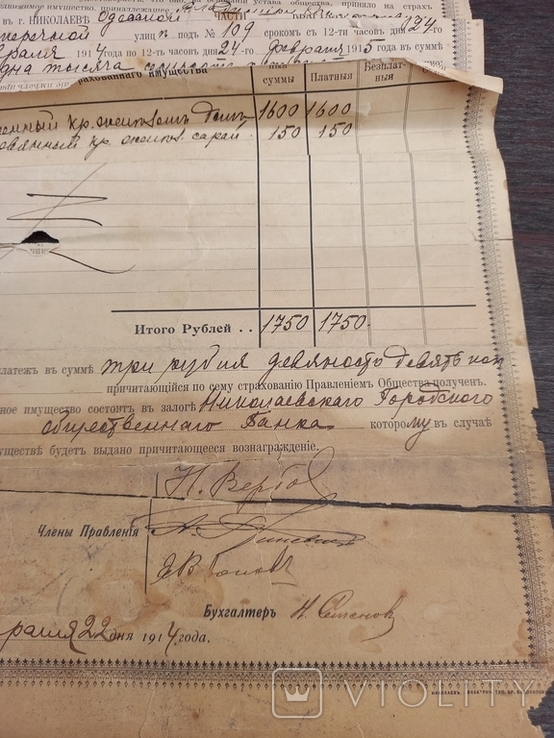 движимое имущество, принадлежащее
въ г. НИКОЛАЕВѢ Одесской ЧАСТИ
перечной улицѣ подъ № 109 срокомъ съ 12-ти часовъ дня 24-го
враля 1914 года по 12-ть часовъ дня 24-го февраля 1915 въ суммѣ
дна тысяча
рахованнаго имущества суммы Платныя Безплатныя
нный кр. желѣзомъ домъ 1600 1600
овянный кр. желѣз. сарай 150 150
Итого Рублей . . 1750 1750.
латежъ въ суммѣ три рубля девяносто девять коп
причитающійся по сему страхованію Правленіемъ Общества полученъ.
ное имущество состоитъ въ залогѣ Николаевскаго Городского
общественнаго Банка которому въ случаѣ
уществѣ будетъ выдано причитающееся вознагражденіе.
Н. Вербо
Члены Правленія
Бухгалтеръ Н. Семеновъ
раля 22 дня 1914 года.
VIOLITY